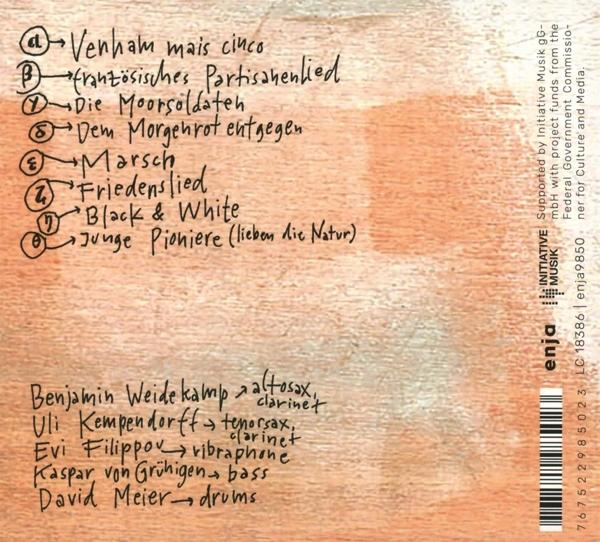 α → Venham mais cinco
β → französisches Partisanenlied
γ → Die Moorsoldaten
δ → Dem Morgenrot entgegen
ε → Marsch
ζ → Friedenslied
η → Black & White
θ → Junge Pioniere (lieben die Natur)
Benjamin Weidekamp → altosax,
clarinet
Uli Kempendorff → tenorsax,
clarinet
Evi Filippou → vibraphone
Kaspar von Grünigen → bass
David Meier → drums
Supported by Initiative Musik gG-
mbH with project funds from the
Federal Government Commissio-
ner for Culture and Media.
INITIATIVE
MUSIK
enja
LC 18386 | enja9850
767522985023